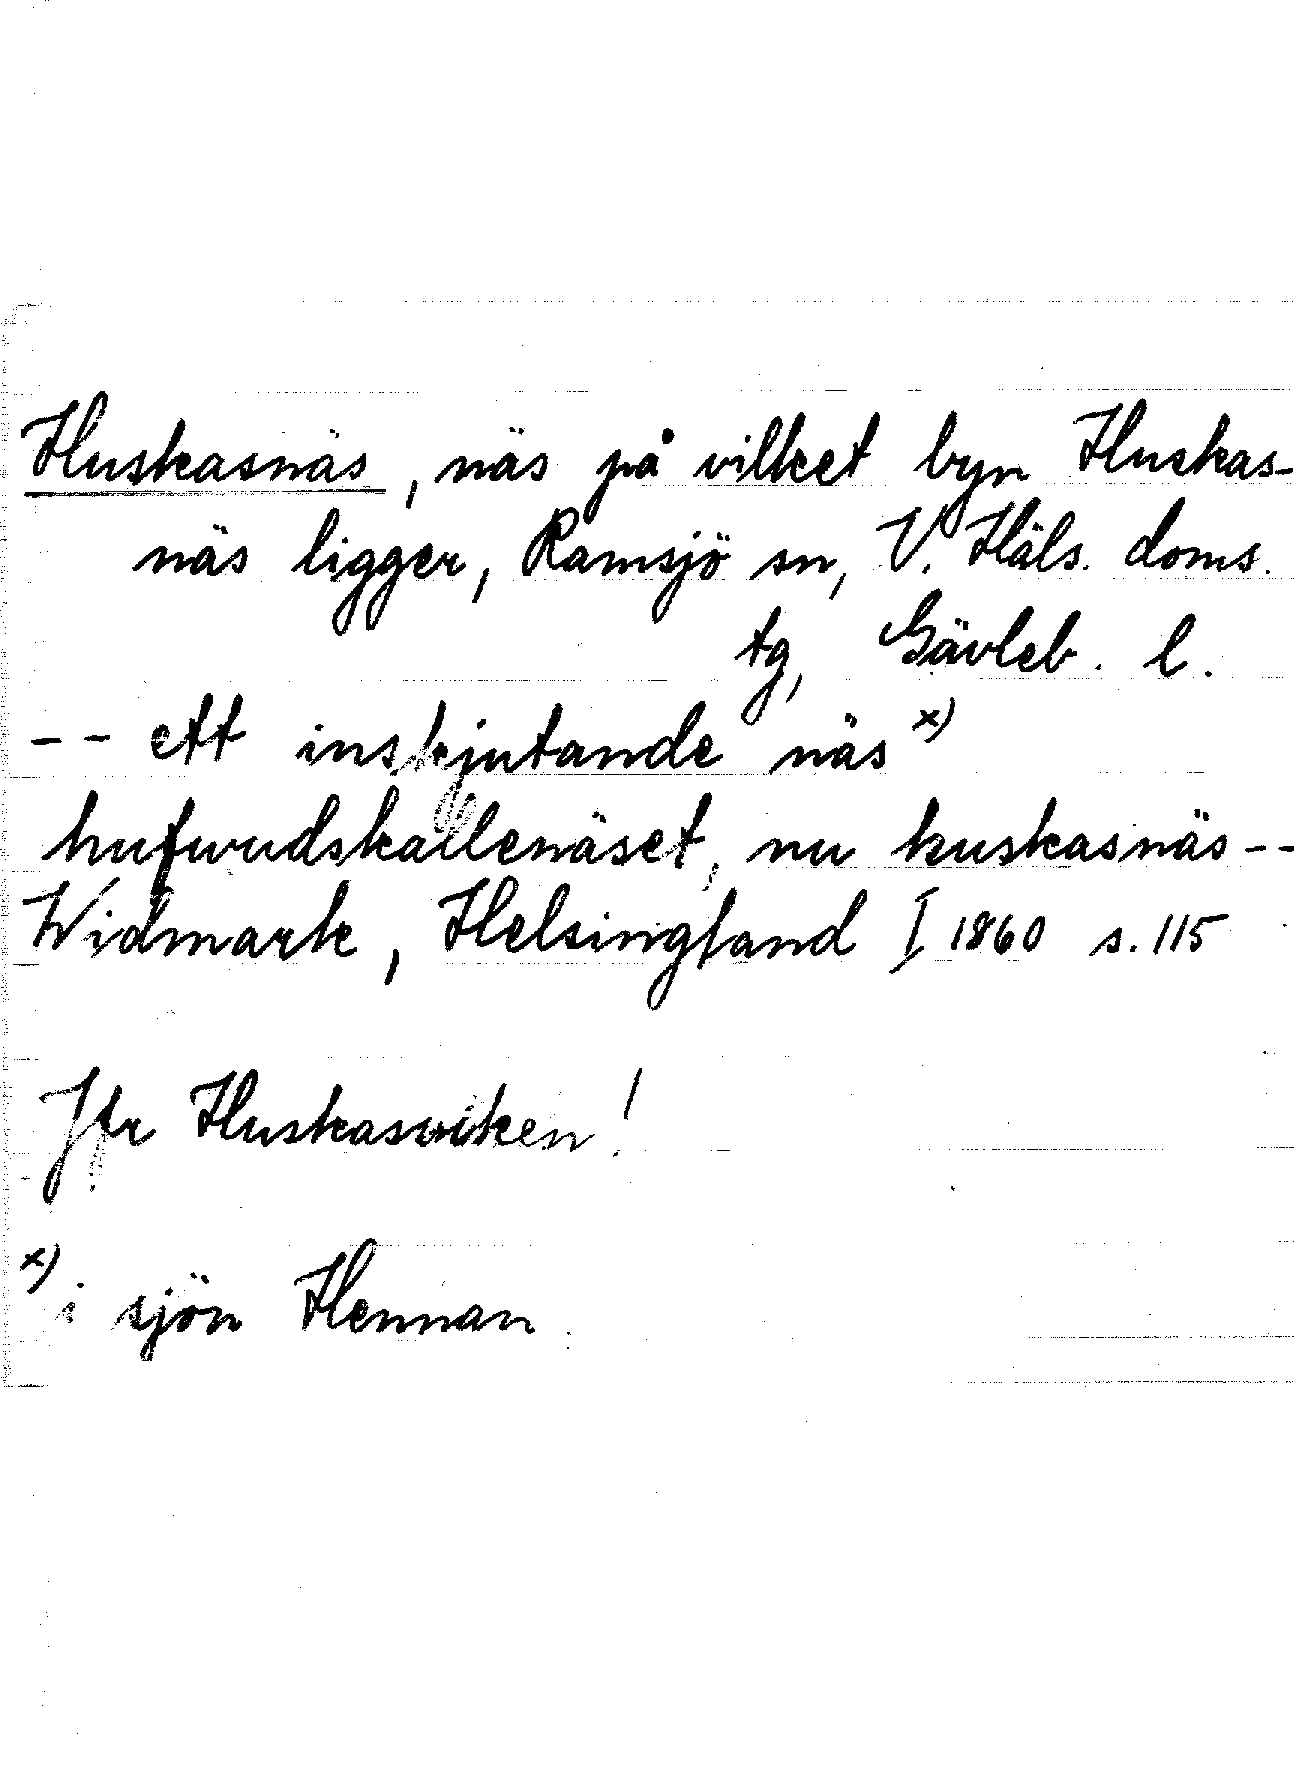 Huskasnäs, näs på vilket byn Huskas-
näs ligger, Ramsjö sn, V. Häls. doms.
tg, Gävleb. l.
-- ett inskjutande näs x)
hufwudskallenäset, nu huskasnäs --
Widmark, Helsingland I 1860 s. 115
Jfr Huskasviken!
x) i sjön Hennan.